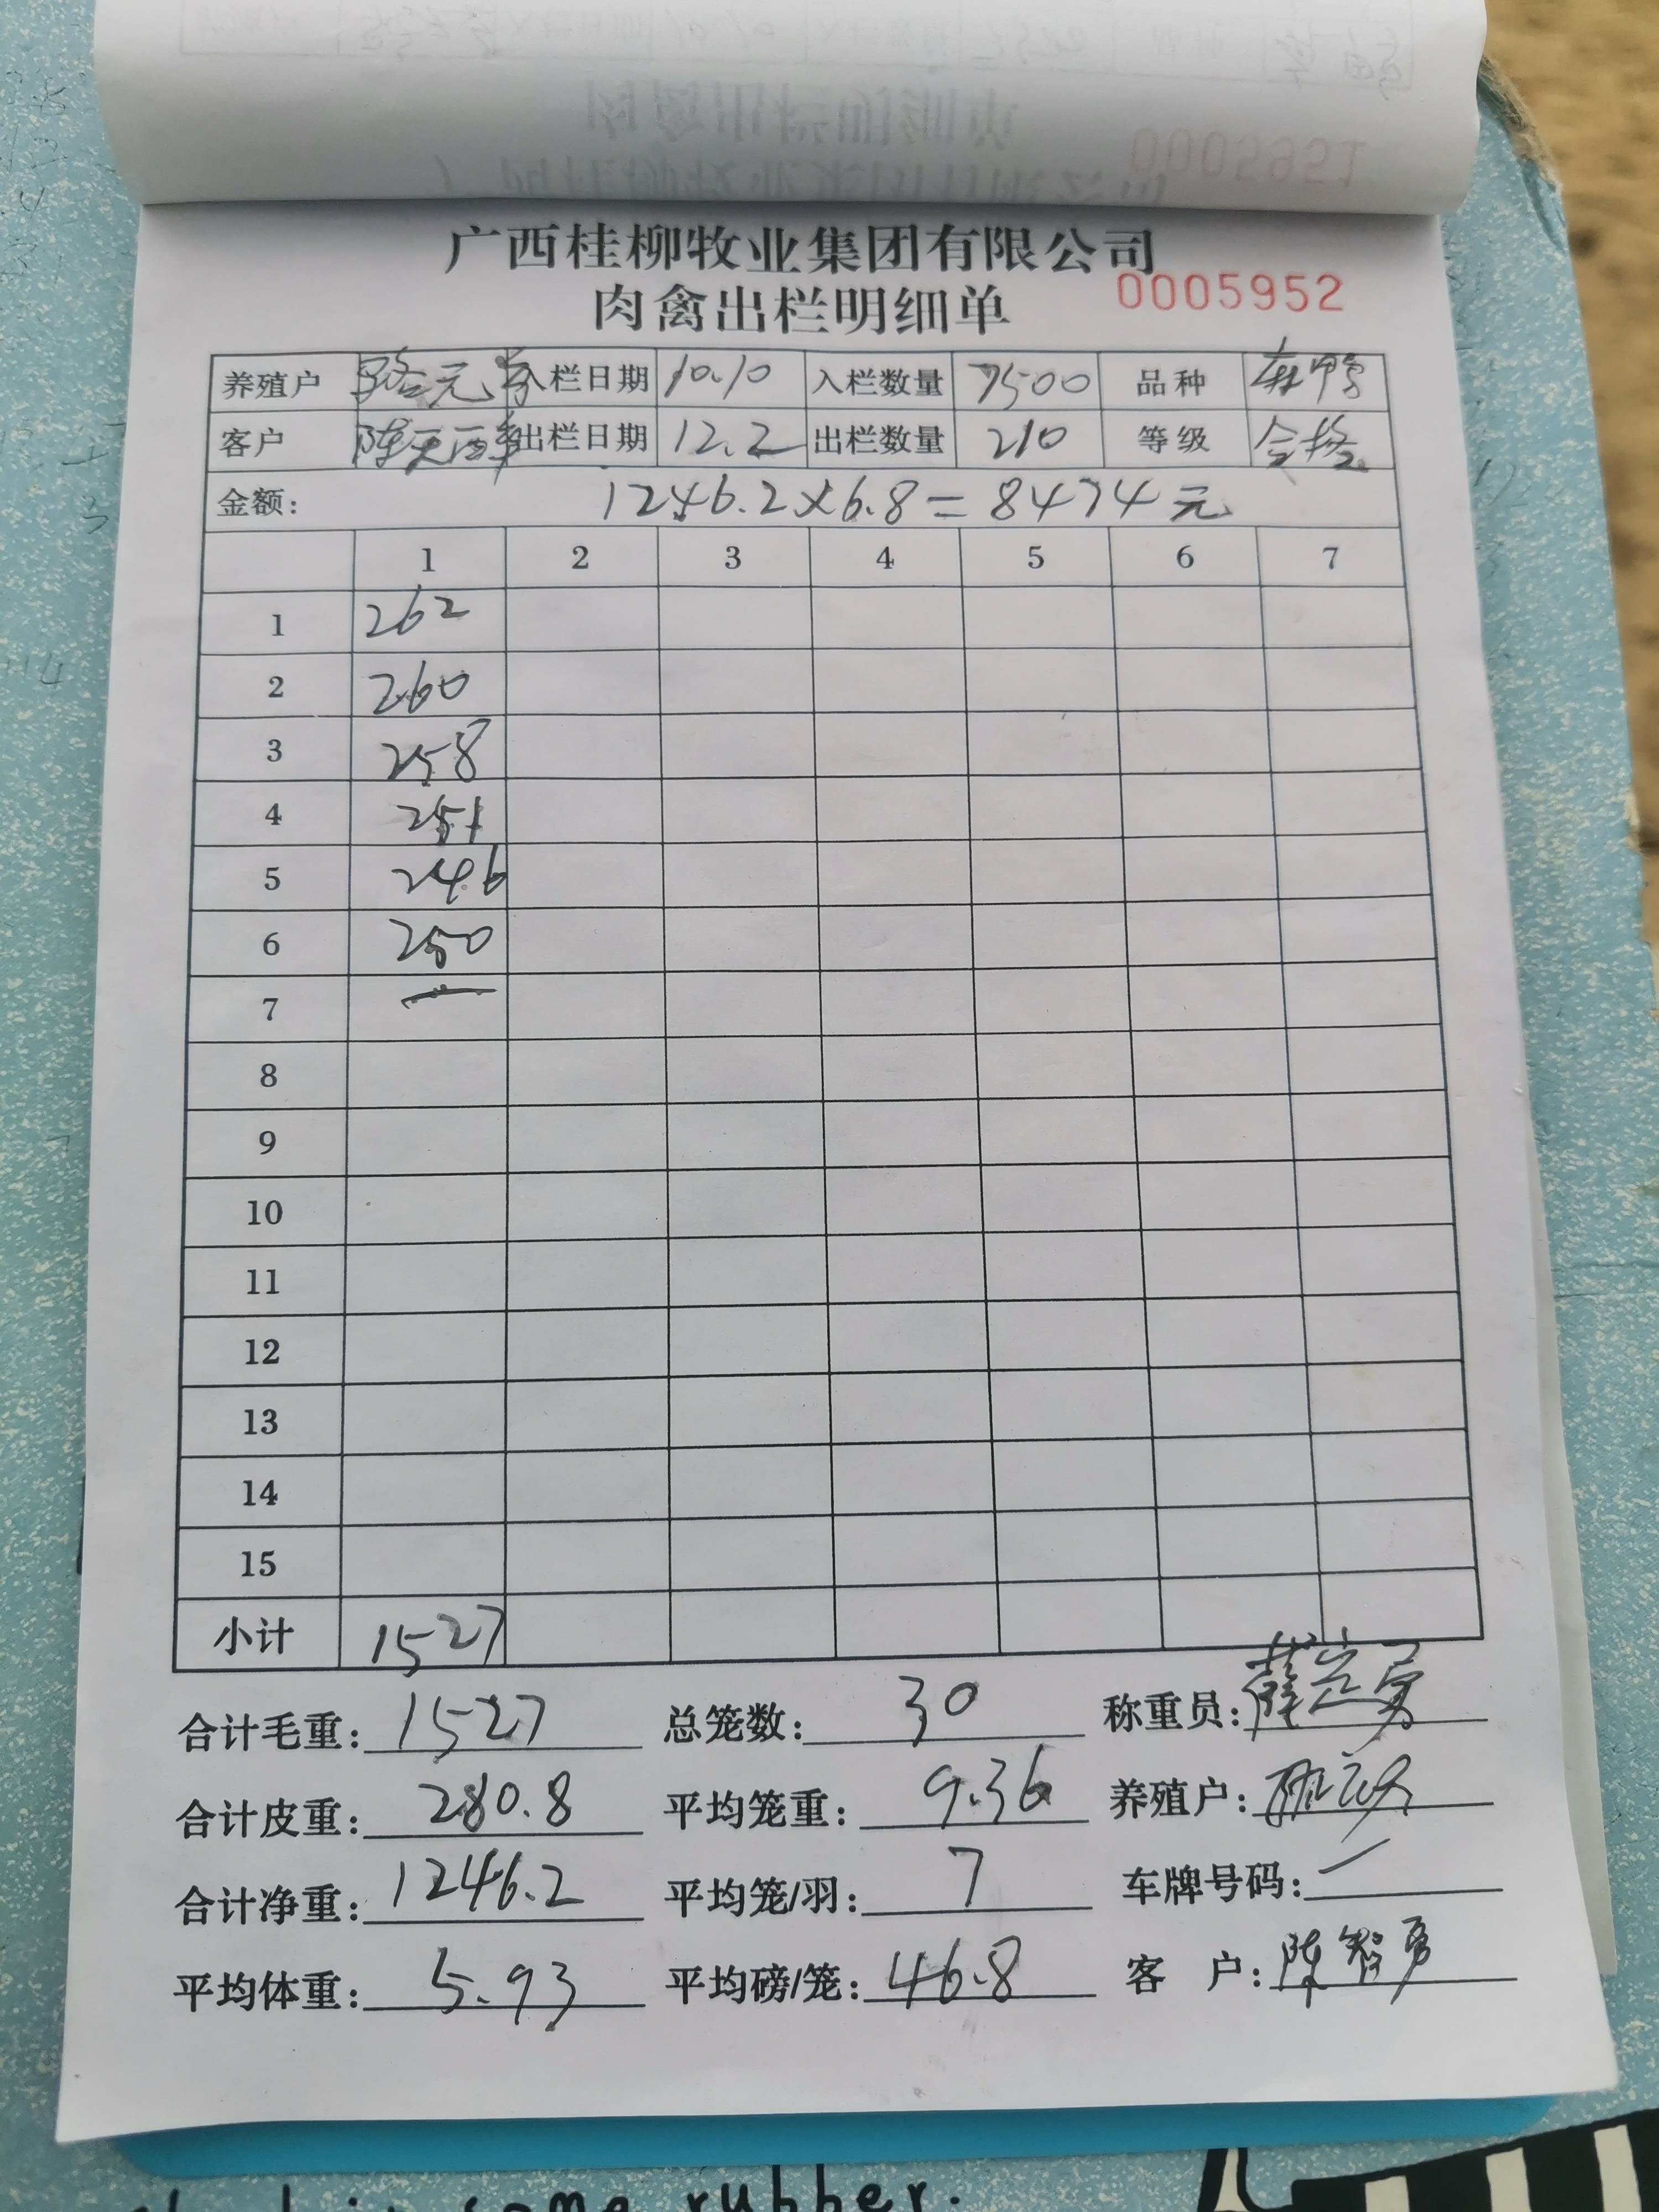 广西桂柳牧业集团有限公司
肉禽出栏明细单 0005952
养殖户 元 入栏日期 10.10 入栏数量 7500 品种 麻鸭
客户 陈 出栏日期 12.2 出栏数量 210 等级 合格
金额: 1246.2×6.8=8474元
1 2 3 4 5 6 7
1 262
2 260
3 258
4 251
5 246
6 250
7
8
9
10
11
12
13
14
15
小计 1527
合计毛重: 1527 总笼数: 30 称重员: 薛定勇
合计皮重: 280.8 平均笼重: 9.36 养殖户:
合计净重: 1246.2 平均笼/羽: 7 车牌号码: 一
平均体重: 5.93 平均磅/笼: 46.8 客 户: 陈智勇
some rubber.